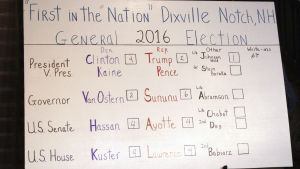 "First in the "Nation" Dixville Notch, NH
General 2016 Election
Dem. Rep. Other Write-ins
President Clinton 4 Trump 2 Lib Johnson
V. Pres. Kaine Pence Stein
Governor Van Ostern Sununu Lib Abramson
U.S. Senate Hassan 4 Ayotte 4 Lib Chabot
Ind Day
U.S. House Kuster Lawrence Ind Babiarz